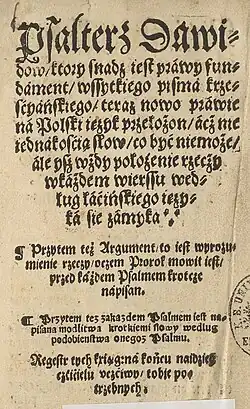 Psalterz Dawi-
dow/ ktory snadz iest prawy fun-
dament/ wssytkiego pisma krze-
scyańskiego/ teraz nowo prawie
na Polski ięzyk przełożon/ acż nie
iednakością słow/ co być niemoże/
ale ysz wżdy położenie rzeczy
wkażdem wierssu wed-
lug łacińskiego ięzy-
ka sie zamyka
¶ Przytem też Argument/ to iest wyrozu-
mienie rzeczy/ oczem Prorok mowił iest/
przed każdem Psalmem krotcze
napisan.
¶ Przytem też zakażdem Psalmem iest na-
pisana modlitwa krotkiemi słowy według
podobieństwa onegoż Psalmu.
Regestr tych ksiąg na końcu naidziesz
czcicielu vczciwy/ tobie po-
trzebnych.